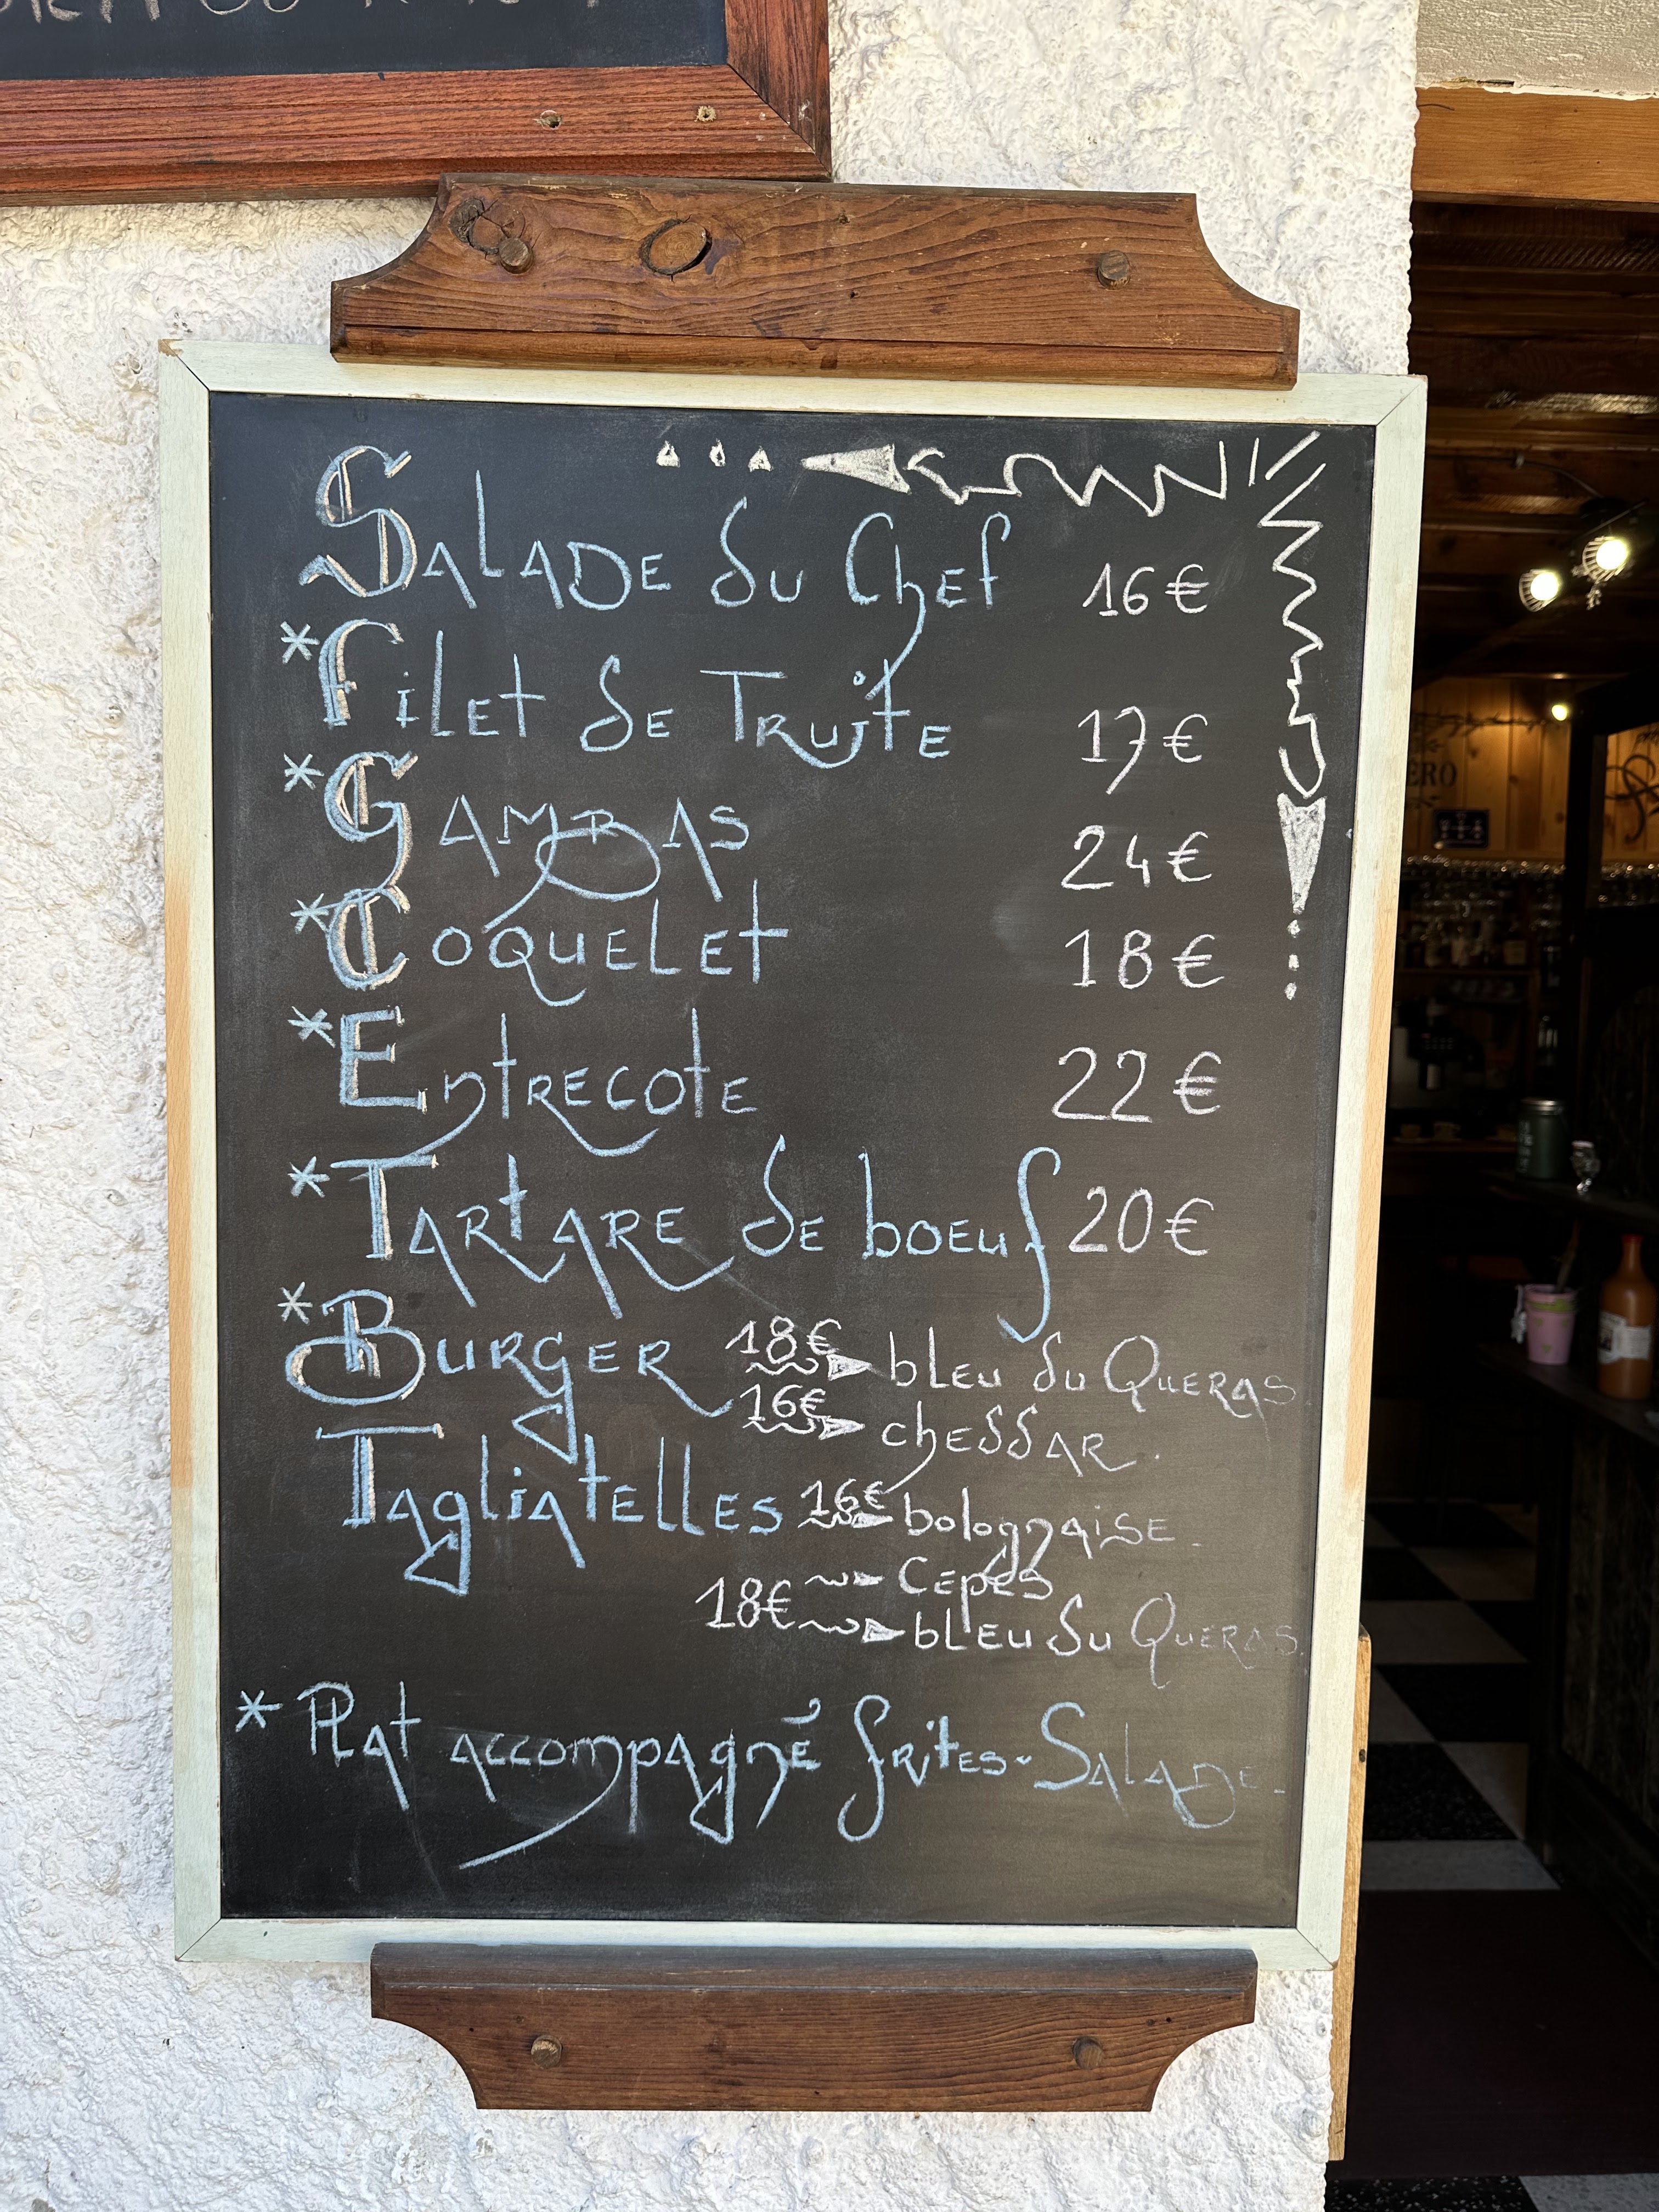 Salade du Chef 16€
*Filet de Truite 17€
*Gambas 24€
*Coquelet 18€
*Entrecote 22€
*Tartare de boeuf 20€
*Burger 18€ bleu du Queras
16€ cheddar.
Tagliatelles 16€ bolognaise.
Cepes
18€ bleu du Queras
* Plat accompagné frites-Salade-
ERO